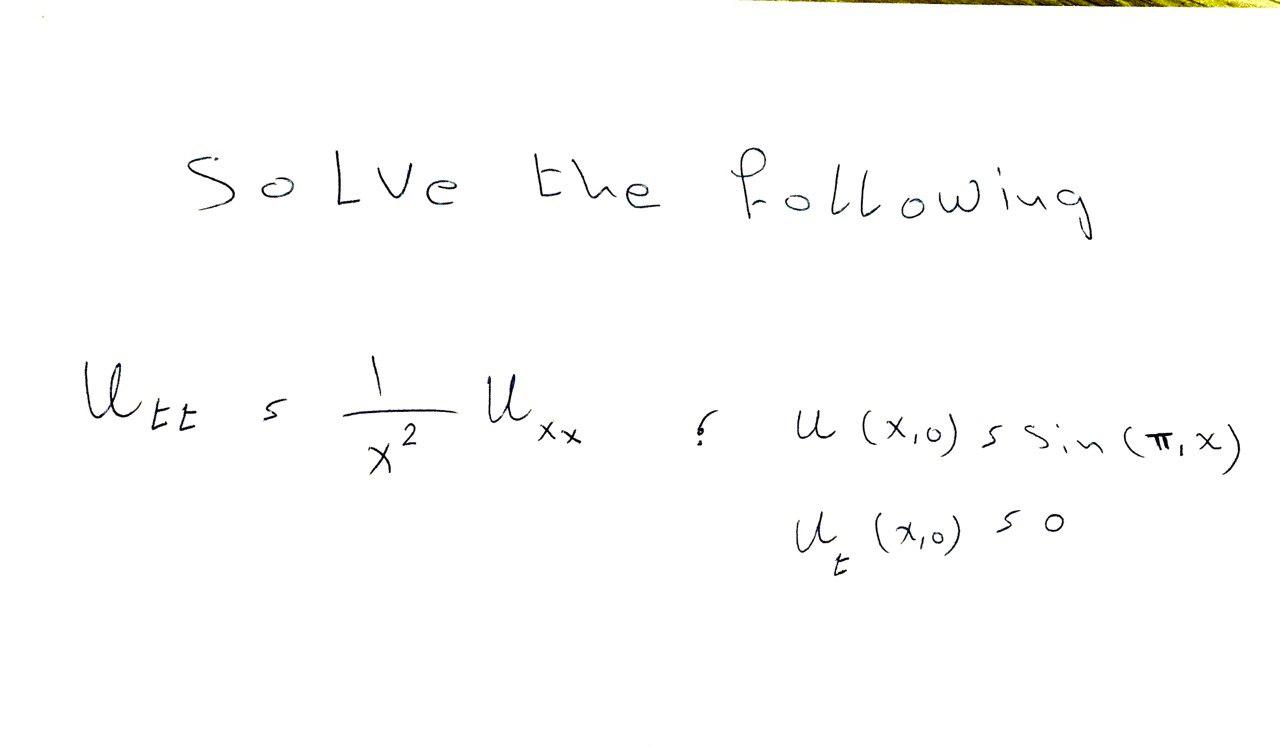 Solve the following
u_tt = 1/x² u_xx ; u(x,0) = sin(π,x)
u_t(x,0) = 0